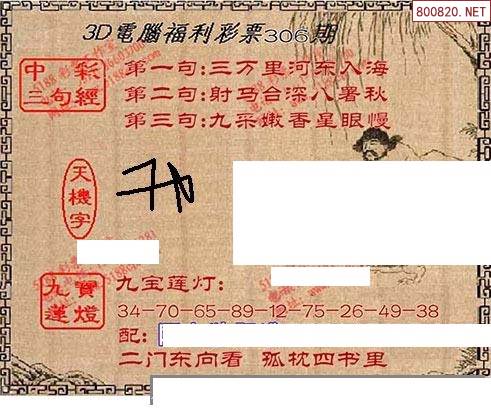 800820.NET
3D電腦福利彩票306期
中彩
三句經
第一句:三万里河东入海
第二句:射马台深八署秋
第三句:九采嫩香星眼慢
天機字
九寶
蓮燈
九宝莲灯:
34-70-65-89-12-75-26-49-38
配:
二门东向看 孤枕四书里